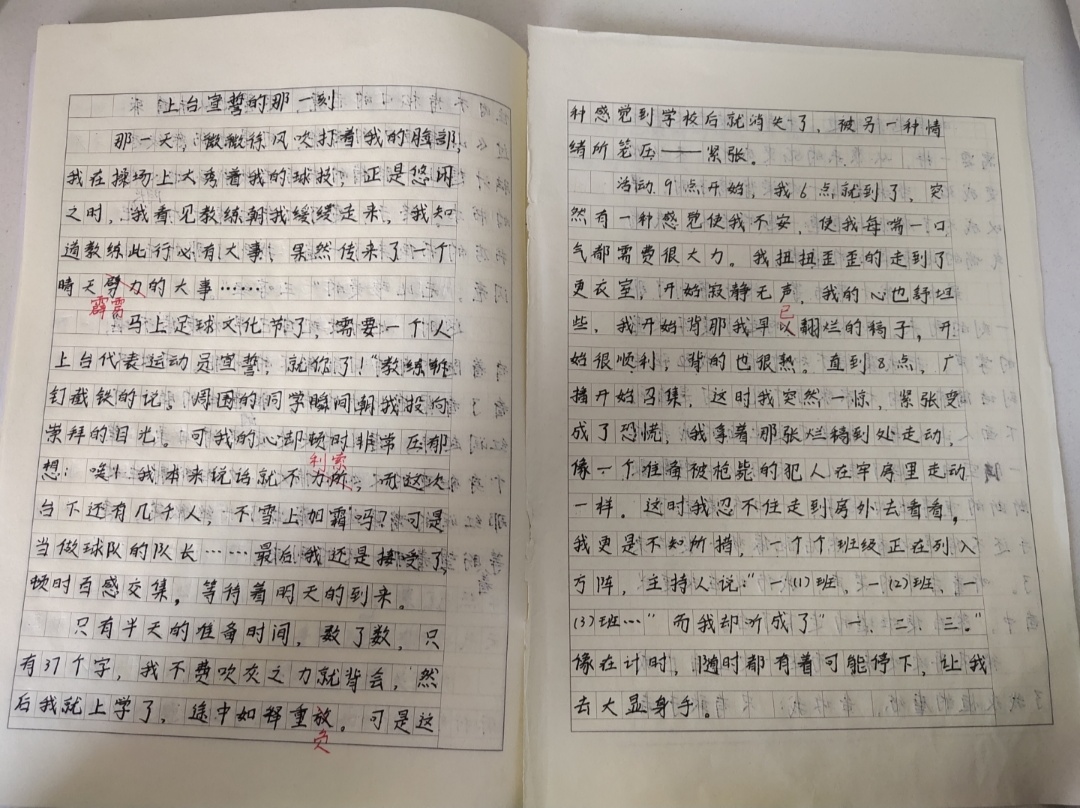 上台宣誓的那一刻
那一天，微微徐风吹打着我的脸部，
我在操场上大秀着我的球技，正是悠闲
之时，我看见教练朝我缓缓走来，我知
道教练此行必有大事，果然传来了一个
晴天劈力的大事……
霹雳
马上足球文化节了，需要一个人
上台代表运动员宣誓，就你了！"教练斩
钉截铁的说。周围的同学瞬间朝我投向
崇拜的目光。可我的心却顿时非常压郁
利索
想：唉！我本来说话就不力所，而这次
台下还有几千人，不雪上加霜吗？可是
当做球队的队长……最后我还是接受了，
顿时百感交集，等待着明天的到来。
只有半天的准备时间，数了数，只
有37个字，我不费吹灰之力就背会，然
后我就上学了，途中如释重放。可是这
负
种感觉到学校后就消失了，被另一种情
绪所笼压——紧张。
活动9点开始，我6点就到了，突
然有一种感觉使我不安，使我每喘一口
气都需费很大力。我扭扭歪歪的走到了
更衣室，开始寂静无声，我的心也舒坦
已
些，我开始背那我早以翻烂的稿子，开
始很顺利，背的也很熟。直到8点，广
播开始召集，这时我突然一惊，紧张变
成了恐慌，我拿着那张烂稿到处走动，
像一个准备被枪毙的犯人在牢房里走动
一样。这时我忍不住走到房外去看看，
我更是不知所措，一个个班级正在列入
方阵，主持人说："一(1)班、一(2)班、一
(3)班…"而我却听成了"一、二、三。"
像在计时，随时都有着可能停下，让我
去大显身手。